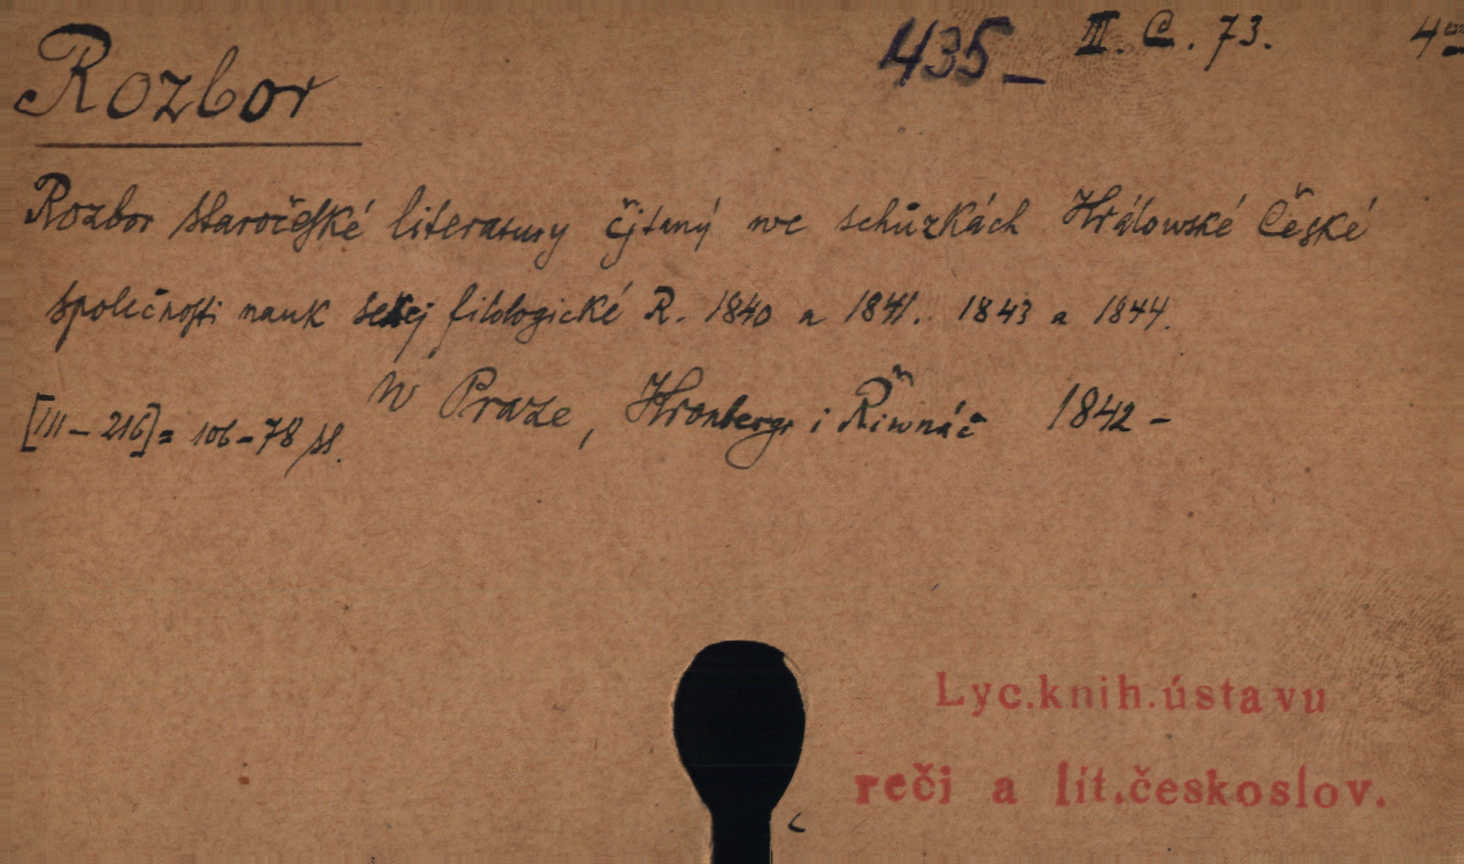 435- III. C. 73.
Rozbor
Rozbor staročeské literatury čjtaný we schůzkách Králowské České
společnosti nauk sekcj filologické R. 1840 a 1841. 1843 a 1844.
W Praze, Kronbergr i Řiwnáč 1842 -
[111-216] = 106-78
Lyc.knih.ústavu
reči a lit.českoslov.